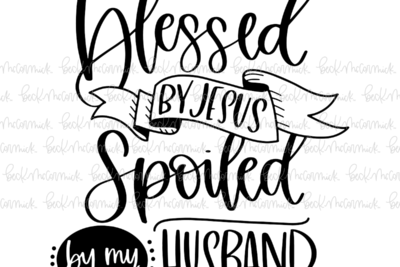 Blessed
BY JESUS
Spoiled
by my HUSBAND